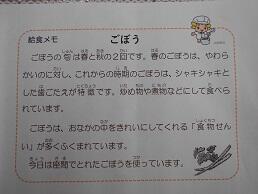 給食メモ ごぼう
ごぼうの旬は春と秋の2回です。春のごぼうは、やわら
かいのに対し、これからの時期のごぼうは、シャキシャキと
した歯ごたえが特徴です。炒め物や煮物などにして食べら
れています。
ごぼうは、おなかの中をきれいにしてくれる「食物せん
い」が多くふくまれています。
今日は座間でとれたごぼうを使っています。